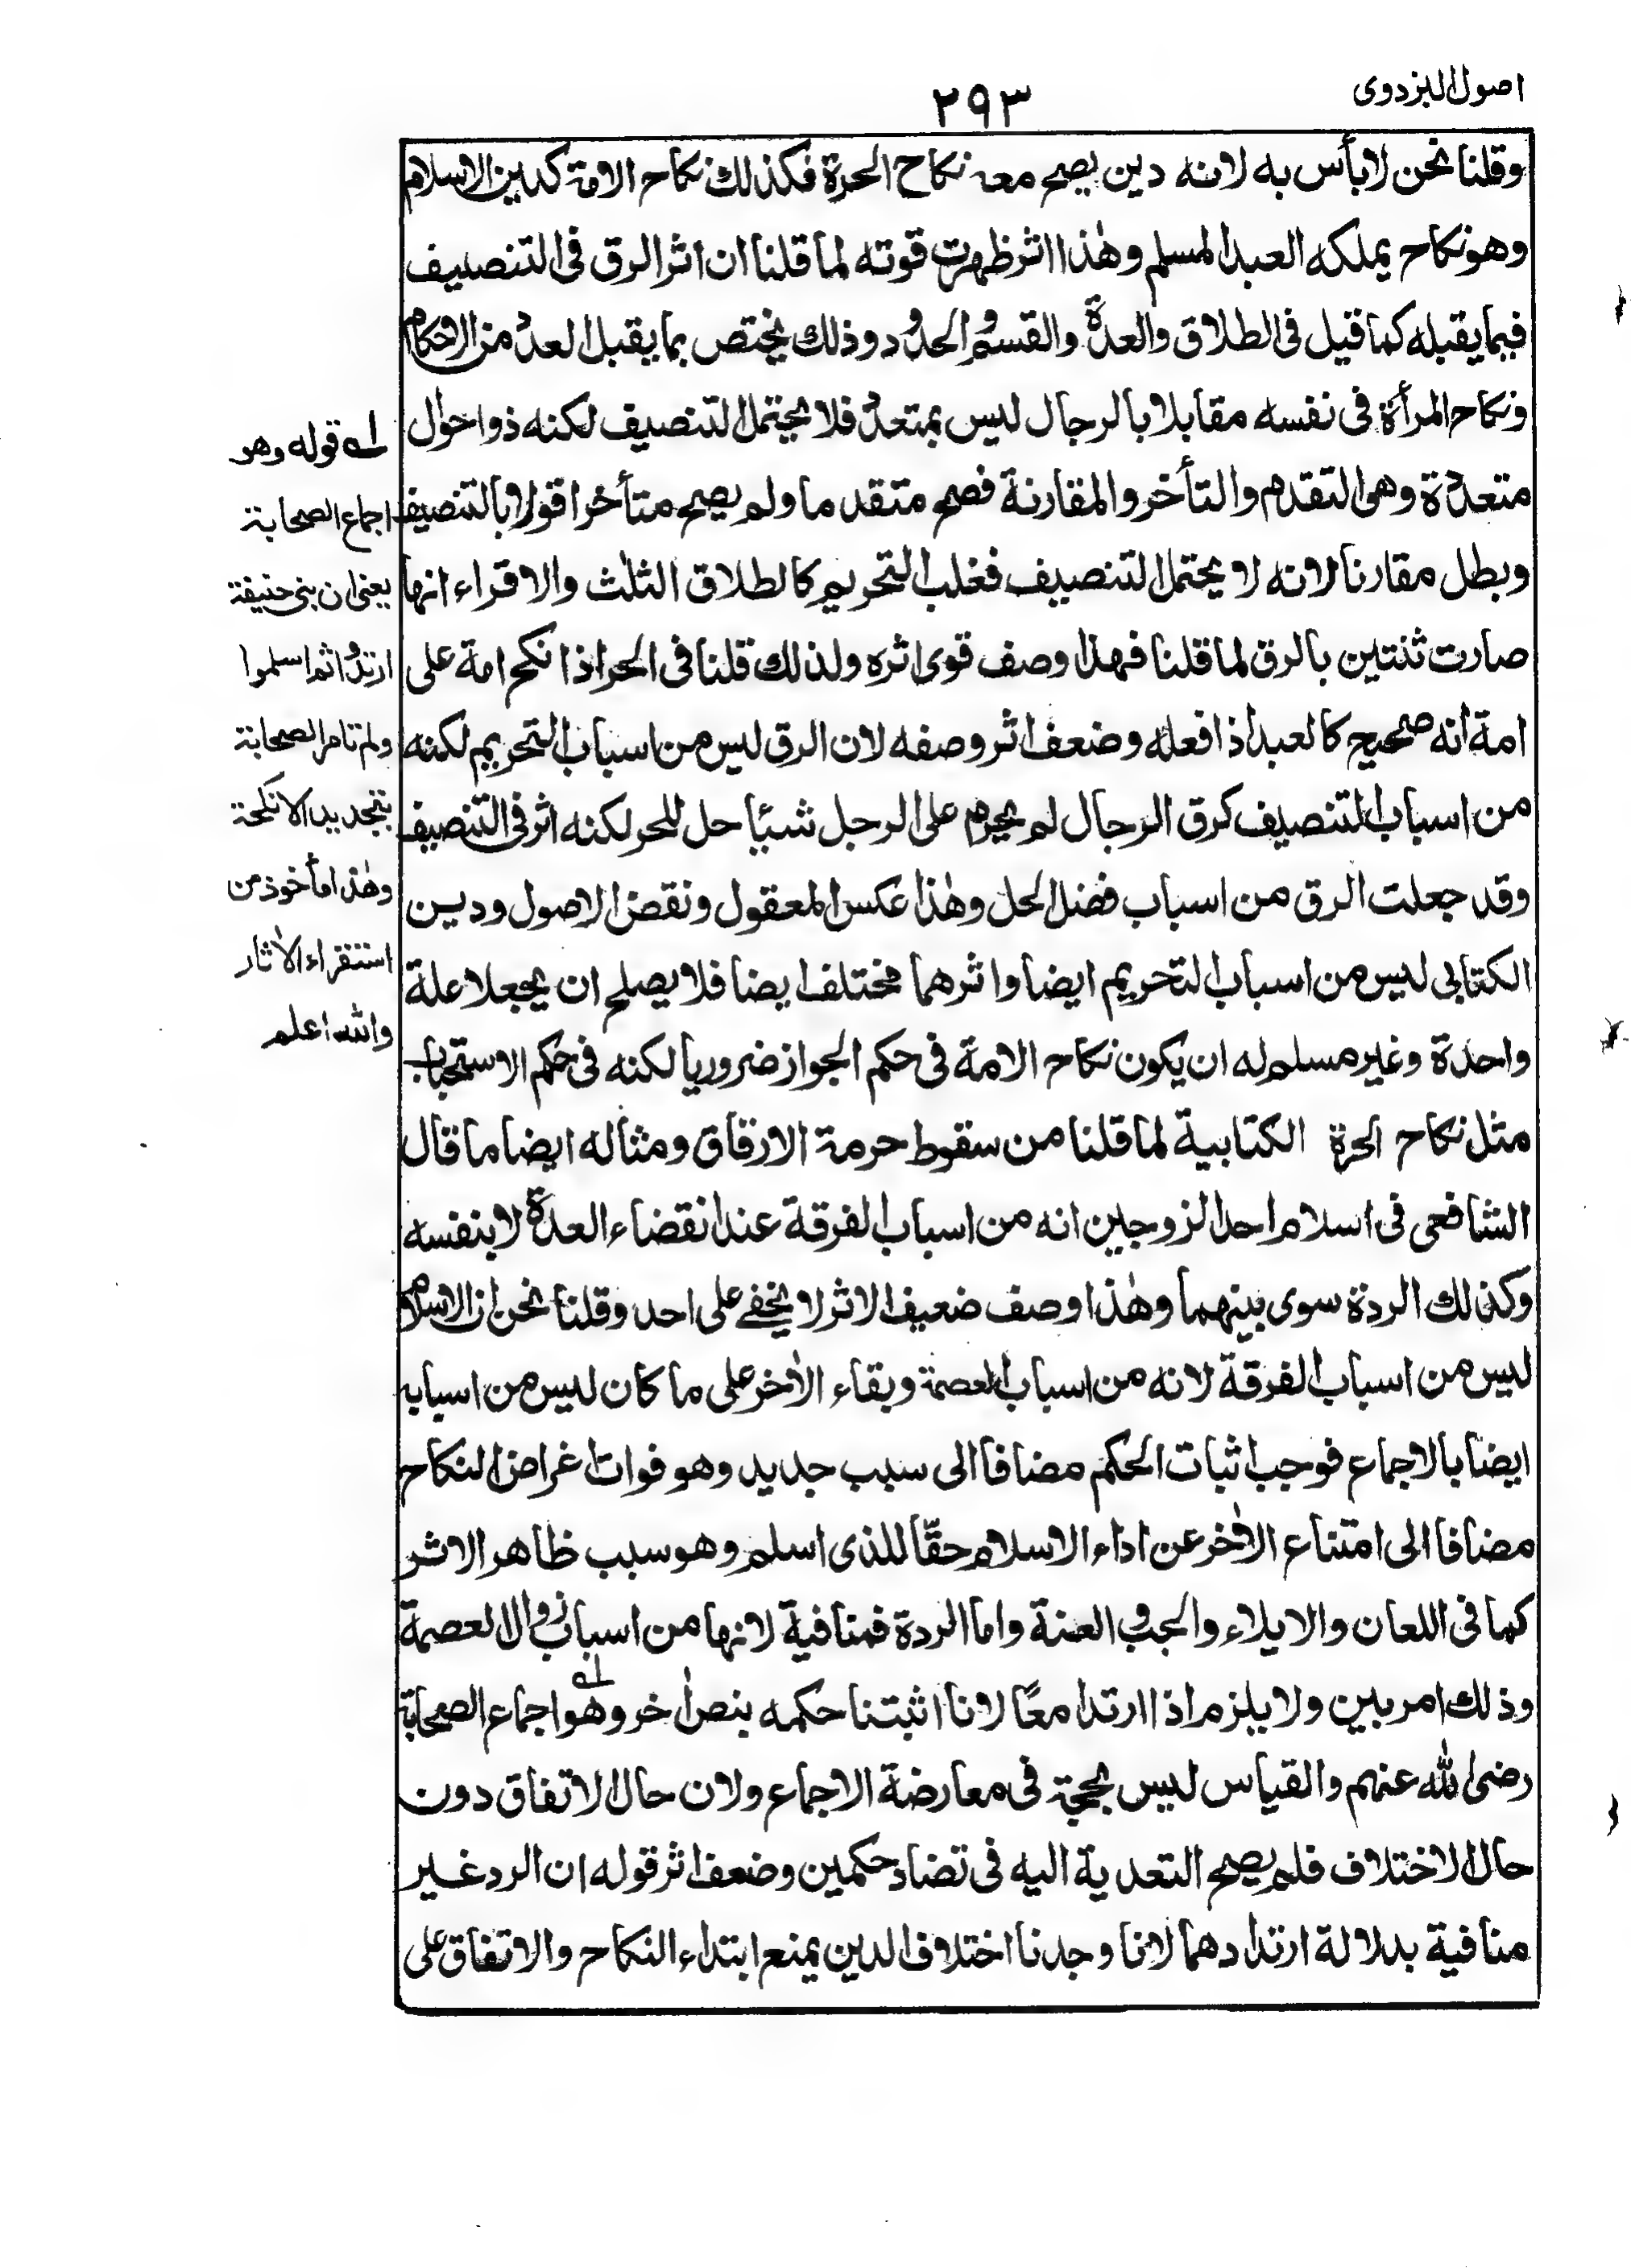 اصول البزدوی
٢٩٣
وقلنا نحن لا بأس به لانه دين يصح معه نكاح الحرة فكذلك نكاح الامة كدين الاسلام
وهو نكاح يملكه العبد المسلم وهٰذا اثر ظهرت قوته لما قلنا ان اثر الرق فى التنصيف
فيما يقبله كما قيل فى الطلاق والعدة والقسم والحدود وذلك يختص بما يقبل العدد من الاحكام
ونكاح المرأة فى نفسه مقابلا بالرجال ليس بمتعدد فلا يحتمل التنصيف لكنه ذو احوال
متعددة وهى التقدم والتأخر والمقارنة فصح متقدما ولم يصح متأخرا قولا بالتنصيف
وبطل مقارنا لانه لا يحتمل التنصيف فغلب التحريم كالطلاق الثلث والاقراء انها
صارت ثنتين بالرق لما قلنا فهذا وصف قوى اثره ولذلك قلنا فى الحر اذا نكح امة على
امة انه صحيح كالعبد اذا فعله وضعف اثر وصفه لان الرق ليس من اسباب التحريم لكنه
من اسباب التنصيف كرق الرجال لم يحرم على الرجل شيئا حل للحر لكنه اثر فى التنصيف
وقد جعلت الرق من اسباب فضل الحل وهٰذا عكس المعقول ونقض الاصول ودين
الكتابى ليس من اسباب التحريم ايضا واثرهما مختلف ايضا فلا يصلح ان يجعلا علة
واحدة وغير مسلم له ان يكون نكاح الامة فى حكم الجواز ضروريا لكنه فى حكم الاستحباب
مثل نكاح الحرة الكتابية لما قلنا من سقوط حرمة الارقاق ومثاله ايضا ما قال
الشافعى فى اسلام احد الزوجين انه من اسباب الفرقة عند انقضاء العدة لا بنفسه
وكذلك الردة سوى بينهما وهٰذا وصف ضعيف الاثر لا يخفے على احد وقلنا نحن ان الاسلام
ليس من اسباب الفرقة لانه من اسباب العصمة وبقاء الاٰخر على ما كان ليس من اسبابه
ايضا بالاجماع فوجب اثبات الحكم مضافا الى سبب جديد وهو فوات اغراض النكاح
مضافا الى امتناع الاٰخر عن اداء الاسلام حقّا للذى اسلم وهو سبب ظاهر الاثر
كما فى اللعان والايلاء والجب والعنة واما الردة فمنافية لانها من اسباب زوال العصمة
وذلك امر بين ولا يلزم اذا ارتدا معًا لانا اثبتنا حكمه بنص اٰخر وهو اجماع الصحابة
رضى الله عنهم والقياس ليس بحجة فى معارضة الاجماع ولان حال الاتفاق دون
حال الاختلاف فلم يصح التعدية اليه فى تضاد حكمين وضعف اثر قوله ان الرد غير
منافية بدلالة ارتدادهما لانا وجدنا اختلاف الدين يمنع ابتداء النكاح والاتفاق على
لـه قوله وهو
اجماع الصحابة
يعنى ان بنى حنيفة
ارتدوا ثم اسلموا
ولم تامر الصحابة
بتجديد الانكحة
وهٰذا مأخوذ من
استقراء الاٰثار
والله اعلم